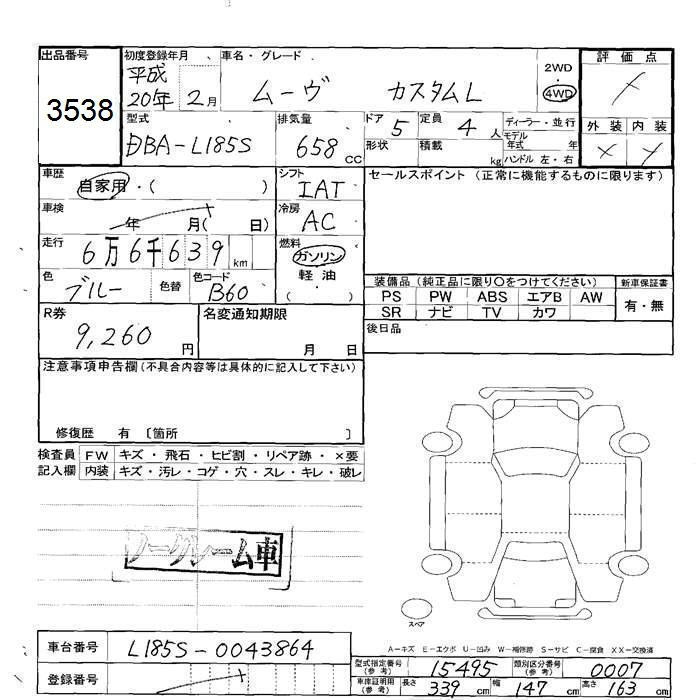 出品番号 初度登録年月 車名・グレード 2WD 評価点
3538 平成20年2月 ムーヴ カスタムL 4WD
型式 排気量 ドア 定員 ディーラー・並行 外装 内装
DBA-L185S 658CC 5 4人 モデル年式 年
形状 積載 kg ハンドル 左・右
車歴 自家用・( ) シフト IAT セールスポイント (正常に機能するものに限ります)
車検 年 月( 日) 冷房 AC
走行 6万6千639km 燃料 ガソリン
軽油
( )
色 ブルー 色替 色コード B60
装備品 (純正品に限り○をつけてください) 新車保証書
PS PW ABS エアB AW 有・無
SR ナビ TV カワ
R券 9,260円 名変通知期限 月 日 後日品
注意事項申告欄 (不具合内容等は具体的に記入して下さい)
修復歴 有 〔箇所 〕
検査員 FW キズ・飛石・ヒビ割・リペア跡・×要
記入欄 内装 キズ・汚レ・コゲ・穴・スレ・キレ・破レ
ノークレーム車
スペア
A-キズ E-エクボ U-凹み W-補修跡 S-サビ C-腐食 XX-交換済
車台番号 L185S-0043864
型式指定番号(参考) 15495 類別区分番号(参考) 0007
登録番号
車庫証明用(参考) 長さ 339cm 幅 147cm 高さ 163cm